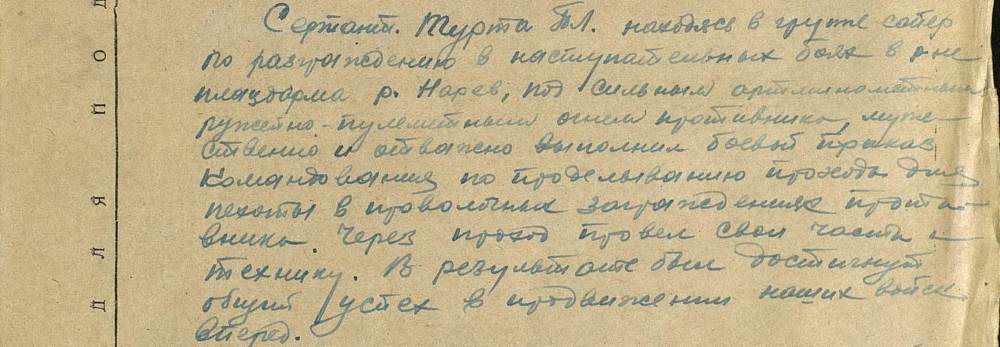 Сержант. Турта Т.Л. находясь в групе сапер
по разграждению в наступательных боях в р-не
плацдарма р. Нарев, под сильным артминометным
ружейно-пулеметным огнем противника, муже-
ственно и отважно выполнил боевой приказ
командования по проделыванию прохода для
пехоты в проволочных заграждениях проти-
вника. Через проход провел свои части и
технику. В результате был достигнут
общий успех в продвижении наших войск
вперед.
Д Л Я   Й О Д